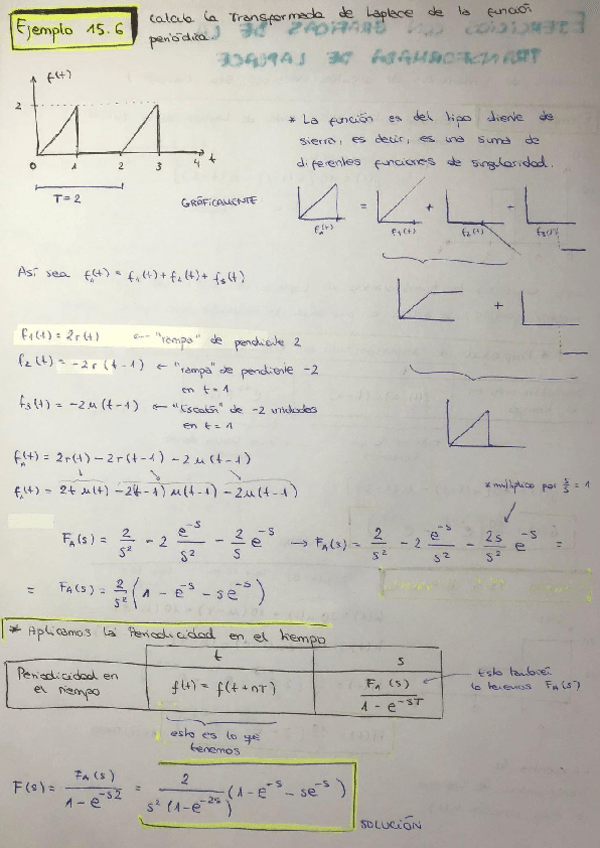 Ejemplo 15.6
Calcula la Transformada de Laplace de la función
periódica
f(t)
2
0 1 2 3 4 t
T=2
* La función es del tipo diente de
sierra, es decir, es una suma de
diferentes funciones de singularidad.
GRÁFICAMENTE
= + -
f₁(t) f₂(t) f₃(t)
+
Así sea f₁(t) = f₁(t) + f₂(t) + f₃(t)
f₁(t) = 2r(t) ← "rampa" de pendiente 2
f₂(t) = -2r(t-1) ← "rampa" de pendiente -2
en t=1
f₃(t) = -2μ(t-1) ← "Escalón" de -2 unidades
en t=1
f₁(t) = 2r(t) - 2r(t-1) - 2μ(t-1)
f₁(t) = 2t μ(t) - 2(t-1) μ(t-1) - 2μ(t-1)
* multiplico por s/s = 1
F₁(s) = 2/s² - 2 e^-s/s² - 2/s e^-s → F₁(s) = 2/s² - 2 e^-s/s² - 2s/s² e^-s =
= F₁(s) = 2/s² (1 - e^-s - se^-s)
* Aplicamos la Periodicidad en el tiempo
t s
Periodicidad en
el tiempo
f(t) = f(t+nT)
F₁(s)/(1 - e^-sT)
← Esto también
lo tenemos F₁(s)
esto es lo que
tenemos
F(s) = F₁(s)/(1-e^-s2) = 2/(s²(1-e^-2s)) (1 - e^-s - se^-s)
SOLUCIÓN